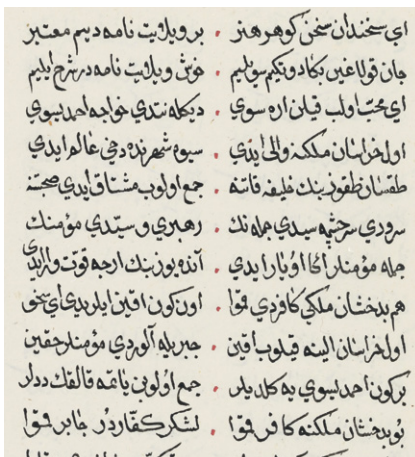 ای سخندان سخن گوهر هنر . بر ویلایت نامه دیم معتبر
جان قولاغین بکا دوت کیم سویلیم . خوش ویلایت نامه در شرح ایلیم
ای محب اولب قیلن اره سوی . دیکله نتدی خواجه احمد یسوی
اول خراسان ملکنه والی ایدی . سیوه شهرنده دخی عالم ایدی
طقسان طقوز بنک خلیفه قاتنه . جمع اولوب مشتاق ایدی صحبتنه
سروری سرچشمه سیدی جمله نك . رهبری و سیدی مؤمنك
جمله مؤمنلر اکا اویار ایدی . یوز بنك ارجه قوت وار ایدی
هم بدخشان ملکی کافردی قوا . اون کون اقین ایلریدی ای
اول خراسان الینه قیلوب اقین . جبریله آلوردی مؤمنلر حقین
بر کون احمد یسوی یه کلدیلر . جمع اولوبن یامه قالقك ددلر
بو بدخشان ملکنه کافر قوا . لشکر کفاردر جابر قوا